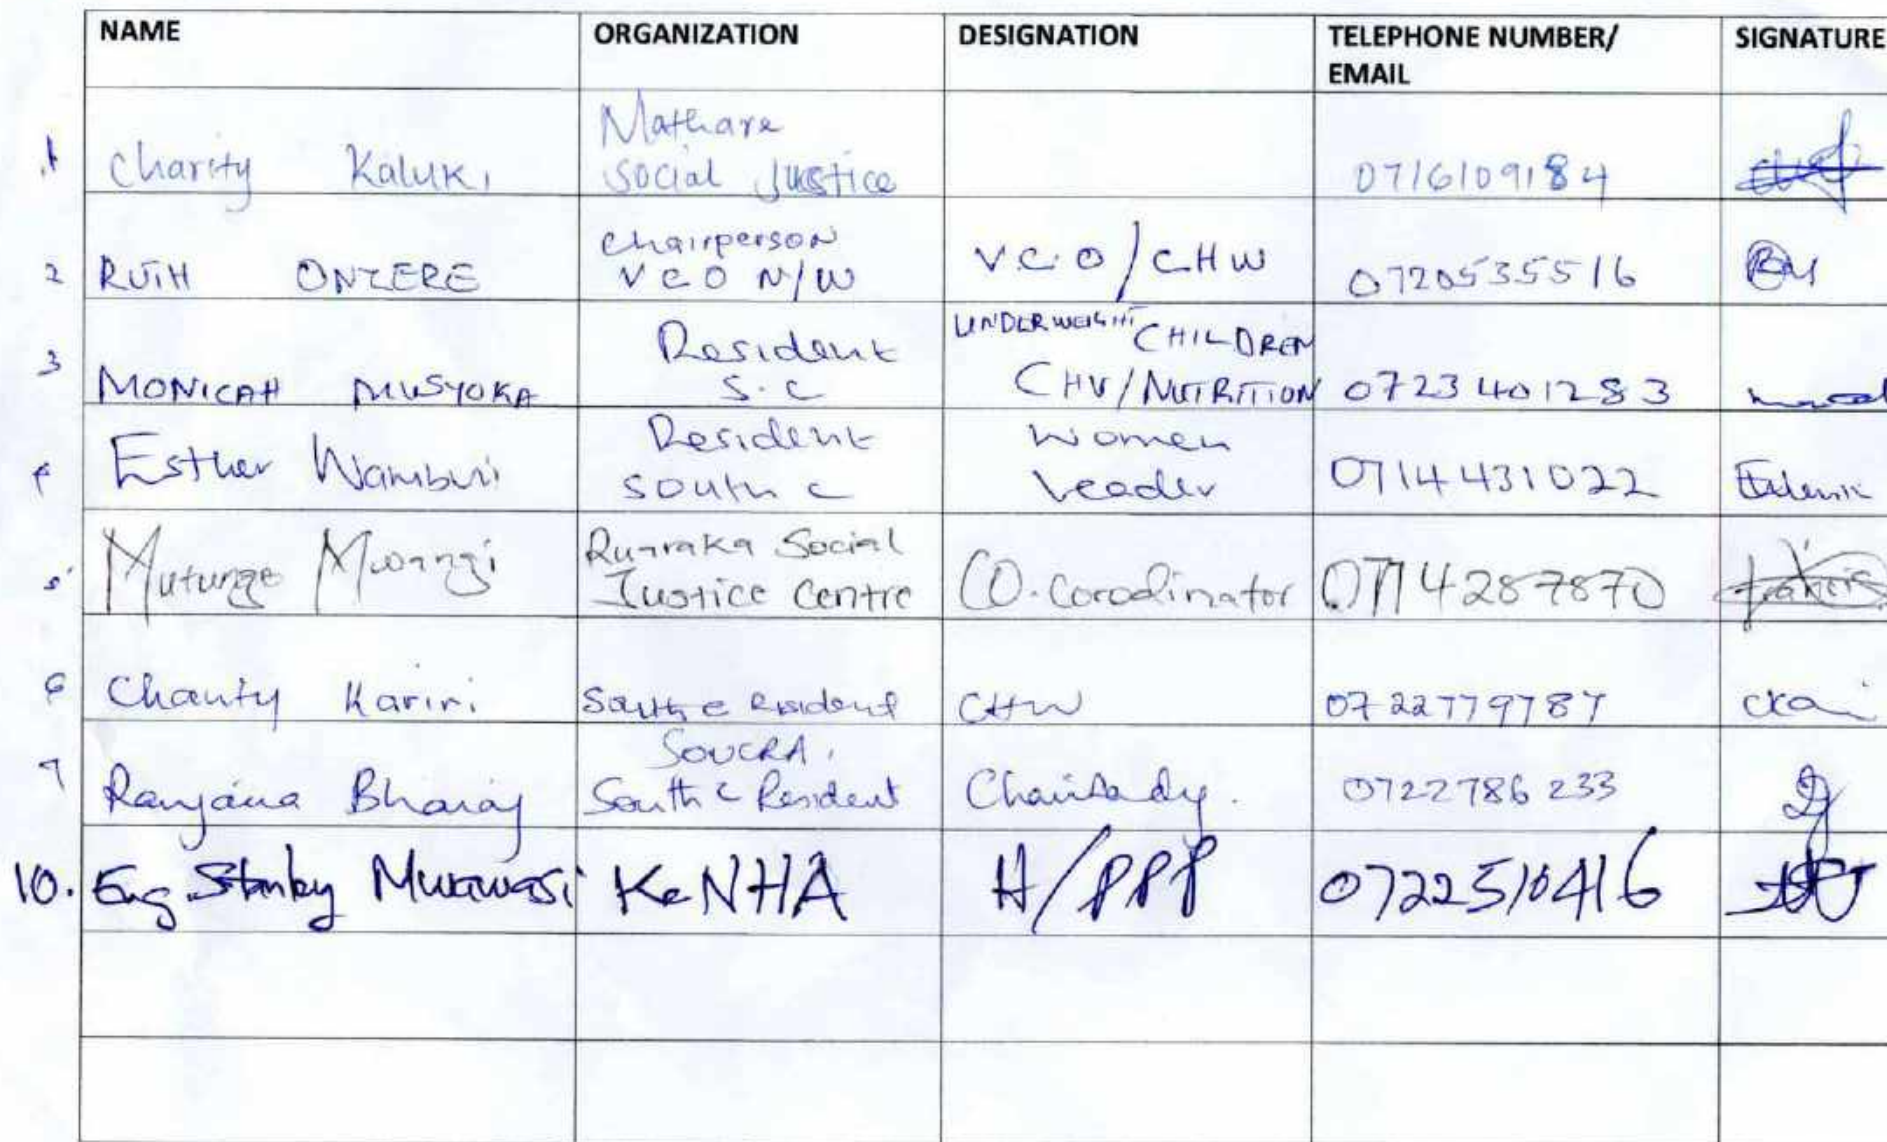 NAME ORGANIZATION DESIGNATION TELEPHONE NUMBER/ EMAIL SIGNATURE
1 Charity Kaluki Mathare Social Justice 0716109184
2 RUTH ONZERE Chairperson V C O N/W V.C.O/CHW 0720535516
3 MONICAH MUSYOKA Resident S.C UNDERWEIGHT CHILDREN CHV/NUTRITION 0723401283
4 Esther Wambui Resident South C Women Leader 0714431022
5 Mutunge Mwangi Ruaraka Social Justice Centre CO-Corodinator 0714287870
6 Charity Kariri South C Resident CHW 0722779787
7 Ranjana Bharaj SOUCRA, South C Resident Chairlady. 0722786233
10. Eng. Stanley Mwawasi KeNHA H/PPP 0722510416